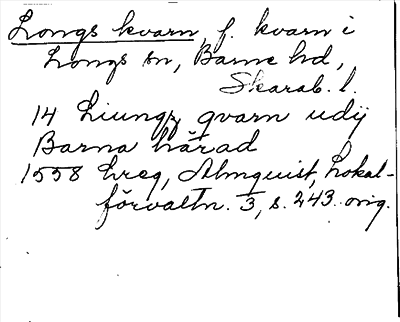 Longs kvarn, f. kvarn i
Longs sn, Barne hd,
Skarab. l.
14 Liungz qvarn udij
Barna härad
1558 Lreg, Almquist, Lokal-
förvaltn. 3, s. 243. orig.